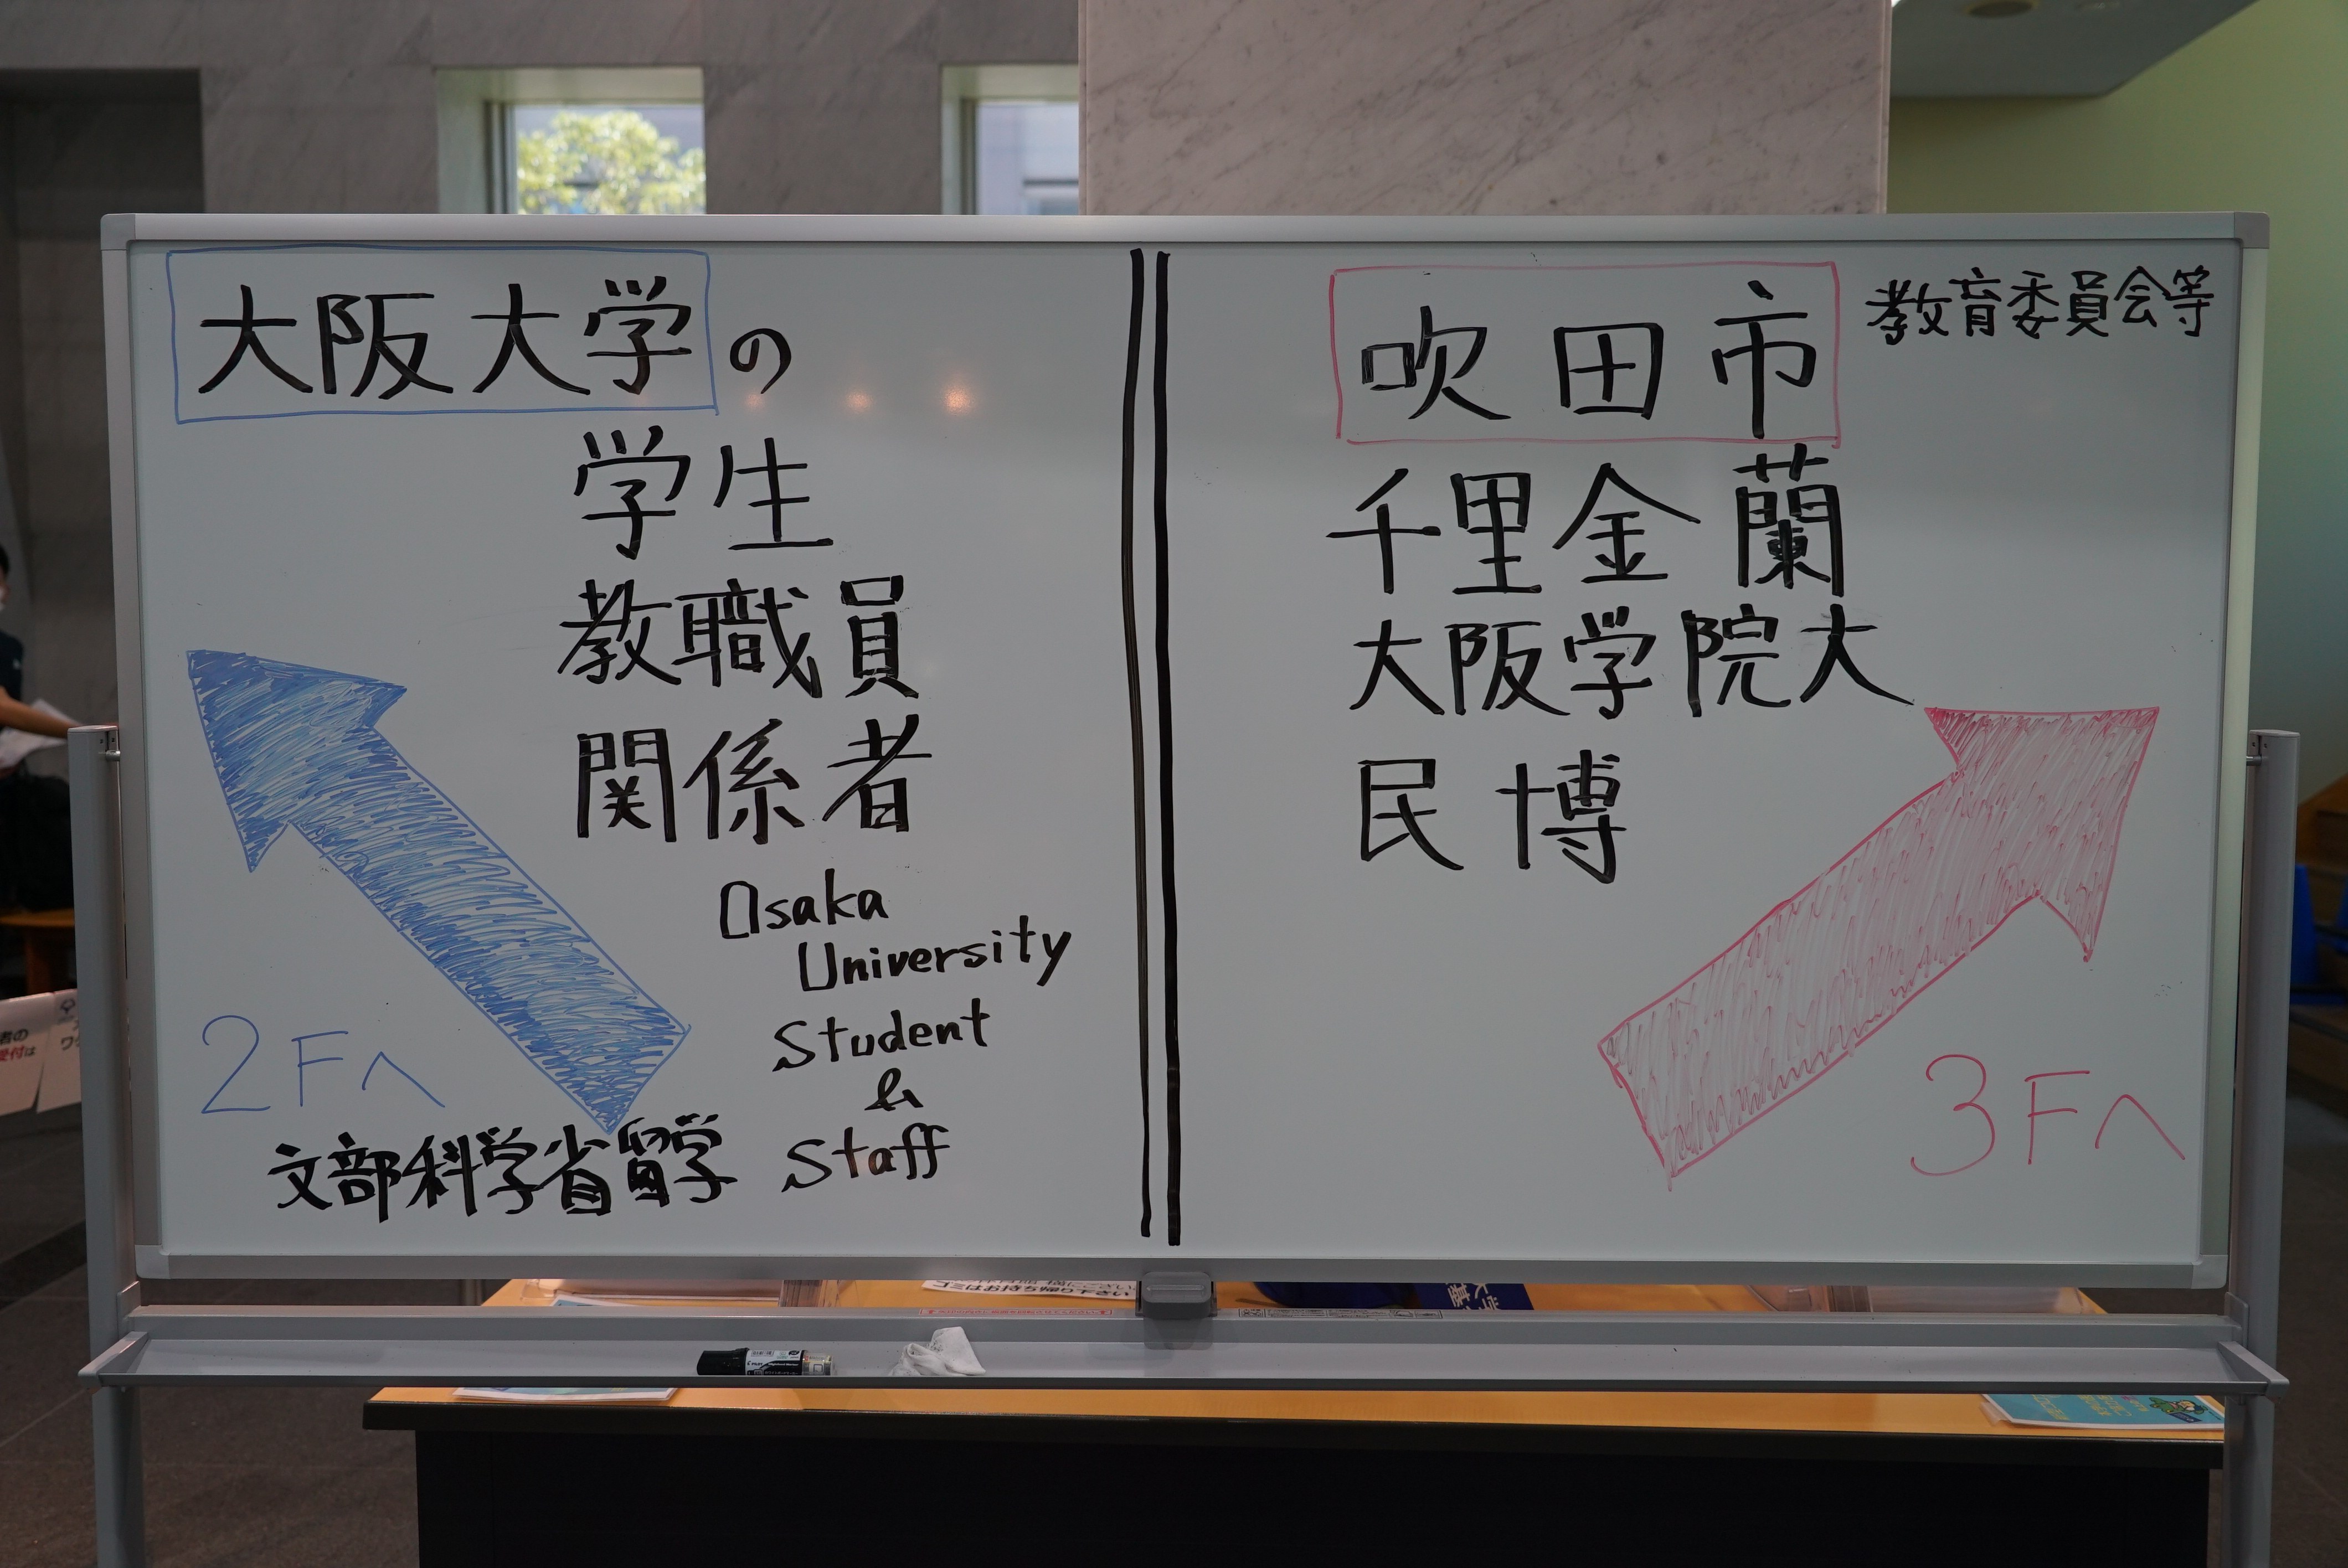 大阪大学の
学生
教職員
関係者
Osaka
University
Student
&
Staff
2Fへ
文部科学省留学
吹田市 教育委員会等
千里金蘭
大阪学院大
民博
3Fへ